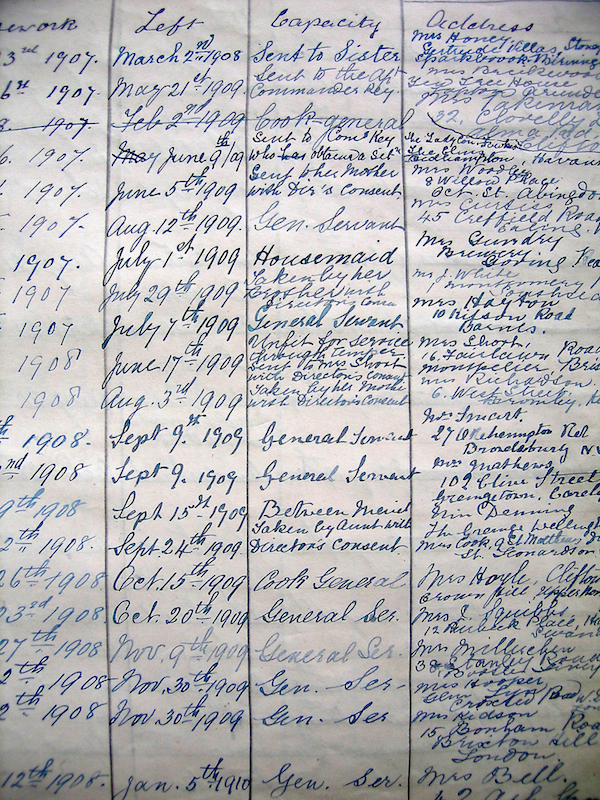 ework Left Capacity Address
Mrs Honey
3rd 1907. March 2nd 1908 Sent to Sister
6th 1907 May 21st 1909 Sent to the Aft
Commander Key
8 1907 Feb 2nd 1909 Cook general
22, Clovelly
6. 1907. May June 9th/09 Sent to Com. Key
Who has obtained a Sit.
1907. June 5th 1909 Sent to her Mother
with Dir's Consent
Mrs Woodley
8 Willow Place
Ock St. Abingdon
1907. Aug. 12th 1909 Gen. Servant
Mrs Curtis
45 Creffield Road
Ealing
1907. July 1st 1909 Housemaid
Mrs Gundry
Brewery
Goring
1907 July 29th 1909 Taken by her
Brother with
Directors Consent
Mrs J. White
Montgomery
1907 July 7th 1909 General Servant
Mrs Hayton
10 Kitson Road
Barnes.
1908 June 17th 1909 Unfit for Service
through temper
Sent to Mrs Short
with Directors Consent
Mrs Short,
16 Fairlawn Road
Montpelier Bris
1908 Aug. 3rd 1909 Taken by his Mother
with Directors Consent
Mrs Richardson
6. West Street
th 1908. Sept 9th. 1909 General Servant
Mrs Smart.
27 Okehampton Rd
Brondesbury N.W
2nd 1908 Sept 9. 1909 General Servant
Mrs Mathews
109 Clive Street
Grangetown, Cardi
9th 1908 Sept 15th 1909 Between Maid
Mrs Denning
The Grange Welling
2th 1908. Sept 24th 1909. Taken by Aunt with
Director's Consent
Mrs Cook 9 St Matthews
St. Leonards on
26th 1908 Oct. 15th 1909 Cook General
Mrs Hoyle, Clifton
Crown Hill, Upper Nor
23rd 1908 Oct. 20th 1909 General Ser.
27th 1908 Nov. 9th 1909 General Ser.
38 Stanley Road
Bootle
2th 1908 Nov. 30th 1909 Gen. Ser-
Mrs Hooper
Croxted Road
2th 1908 Nov. 30th 1909 Gen. Ser.
Mrs Hudson
15 Bonham Road
Brixton Hill
London.
12th 1908. Jan. 5th 1910 Gen. Ser.
Mrs Bell.